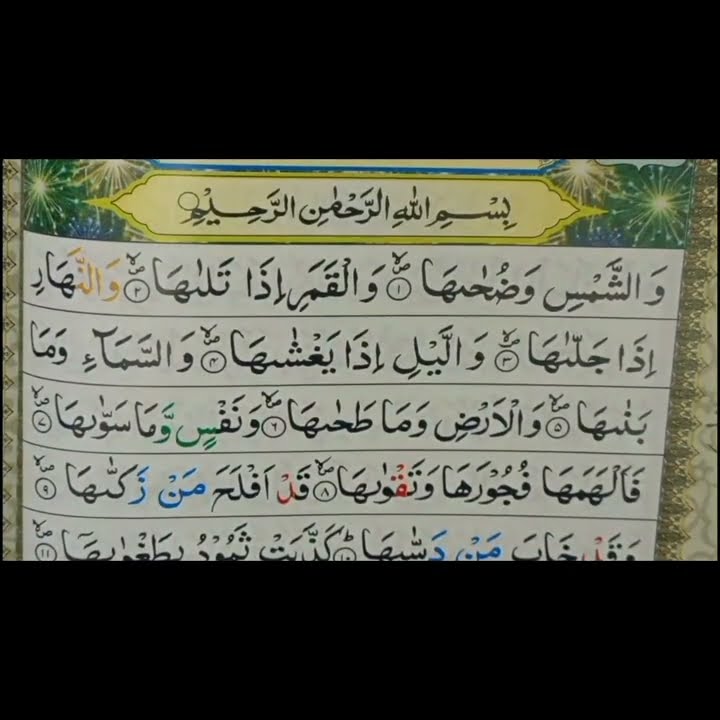 بِسْمِ اللهِ الرَّحْمٰنِ الرَّحِيْمِ
وَالشَّمْسِ وَضُحٰىهَا ۙ﴿۱﴾ وَالْقَمَرِ اِذَا تَلٰىهَا ۙ﴿۲﴾ وَالنَّهَارِ
اِذَا جَلّٰىهَا ۙ﴿۳﴾ وَالَّيْلِ اِذَا يَغْشٰىهَا ۙ﴿۴﴾ وَالسَّمَآءِ وَمَا
بَنٰىهَا ۙ﴿۵﴾ وَالْاَرْضِ وَمَا طَحٰىهَا ۙ﴿۶﴾ وَنَفْسٍ وَّمَا سَوّٰىهَا ۙ﴿۷﴾
فَاَلْهَمَهَا فُجُوْرَهَا وَتَقْوٰىهَا ۙ﴿۸﴾ قَدْ اَفْلَحَ مَنْ زَكّٰىهَا ۙ﴿۹﴾
وَقَدْ خَابَ مَنْ دَسّٰىهَا ؕ﴿۱۰﴾ كَذَّبَتْ ثَمُوْدُ بِطَغْوٰىهَاۤ ۙ﴿۱۱﴾